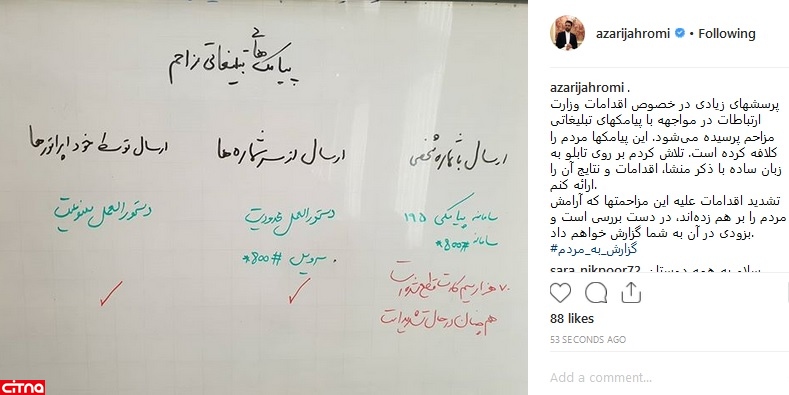 پیامک های تبلیغاتی مزاحم
2
ارسال با شماره شخصی
ارسال از سرشماره ها
ارسال توسط خود اپراتورها
سامانه پیامکی ۱۹۵
سامانه #800*
دستورالعمل محدودیت
سرویس #800*
دستورالعمل ممنوعیت
۷۰ هزار سیم کارت قطع شده است
همچنان در حال تشدید است
citna
azarijahromi • Following
azarijahromi .
پرسشهای زیادی در خصوص اقدامات وزارت
ارتباطات در مواجهه با پیامکهای تبلیغاتی
مزاحم پرسیده می‌شود. این پیامکها مردم را
کلافه کرده است. تلاش کردم بر روی تابلو به
زبان ساده با ذکر منشا، اقدامات و نتایج آن را
ارائه کنم.
تشدید اقدامات علیه این مزاحمتها که آرامش
مردم را بر هم زده‌اند، در دست بررسی است و
بزودی در آن به شما گزارش خواهم داد.
#گزارش_به_مردم
sara_nikpoor72 سلام به همه دوستان
88 likes
53 SECONDS AGO
Add a comment...